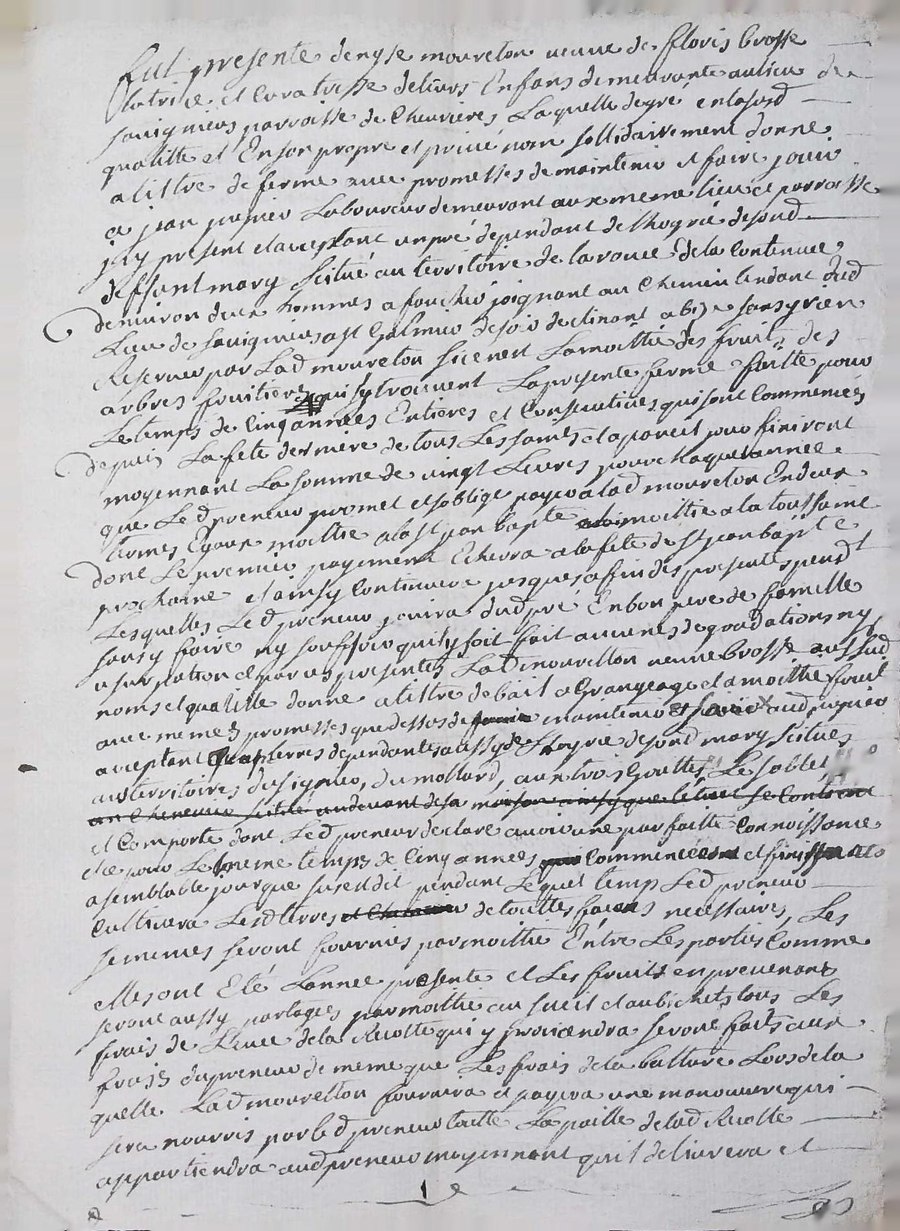 fut presente denyse moureton veuve de floris brosse
tutrice et Curatresse de leurs Enfans demeurante au lieu de
savignieus parroisse de Chevrieres Laquelle de gré en lasusd
qualitte et En son propre et privé nom sollidairement donne
a tittre de ferme avec promesses de maintenir et faire jouir
a jean Laboureur demeurant aux meme lieu et parroisse
icy present et acceptant un pré dependant de lhoyrie de sond
deffunt mary scitué au territoire de la de la Contenue
denviron deux hommes a faucher joignant au Chemin tendant dud
Lieu de savignieus a st Galmier de soir declinant a bize sans y rien
Reserver par Lad mouretton si ce nest La moittié des fruits des
arbres fruitiers qui sy trouvent La presente ferme faitte pour
Le temps de Cinq années Entieres et Consecutives qui sont Commencés
depuis La fete derniere de tous Les saints et a pareil jour finiront
moyennant La somme de vingt Livres pour chaque année
que Led preneur promet et soblige payer a lad mouretton En deux
termes Egaux moittie a la st jean bapte moittie a la toussaint
dont Le premier payement Echerra a la fete de st jean bapte
prochaine et ainsy Continuera jusques a fin des presentes pendt
Lesquelles Led preneur jouira dud pré En bon pere de famille
sans y faire ny souffrir quil y soit fait aucunes degradations ny
usurpation et par ces presentes Lad mouretton veuve brosse aussud
noms et qualitté donne a tittre de bail a Grangeage et a moitté fruit
avec memes promesses que dessos de maintenir et faire aud
acceptant terres dependantes aussy de Lhoyrie de sond mary scitués
aux territoires du du mollard, aux trois Gouttes Le sablet
an Chenevier scitué au devant de sa maison ainsy que le tout se Contient
et Comporte dont Led preneur declare avoir une parfaitte Connoissance
et ce pour Le meme temps de Cinq années Commencées et
a semblable jour que susest dit pendant Lequel temp Led preneur
Cultivera Lesd terres de touttes façons necessaires, Les
semences seront fournies par moittie Entre Les parties Comme
elles ont Eté Lannee presente et Les fruits en provenant
seront aussy partagés par moittie au sueil et au bichet, tous Les
frais de Levee de la Recolte qui y proviendra seront faits aux
frais du preneur de meme que Les frais de la batture Lors de la
quelle Lad mouretton fournira et payera une manoeuvre qui
sera nourris par led preneur toutte La paille de lad Recolte
appartiendra aud preneur moyennant quil delivrera et